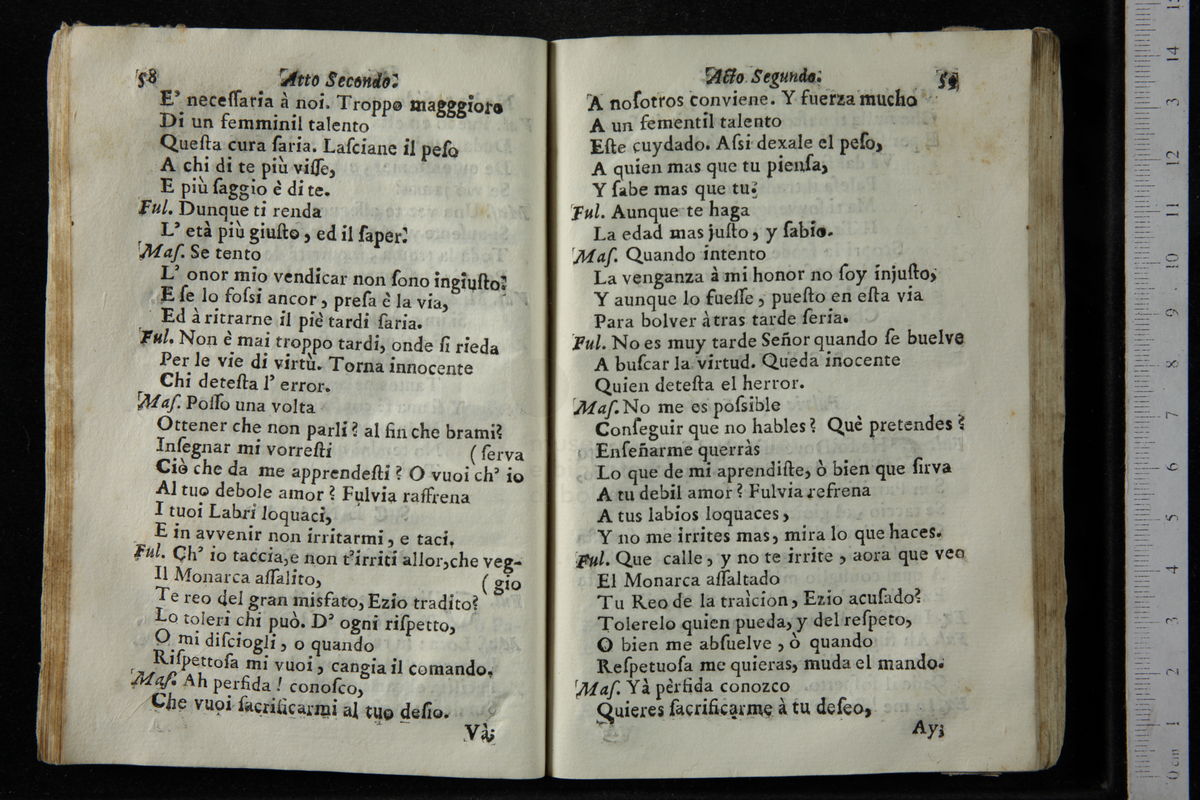 58 Atto Secondo.
E' neceſſaria à noi. Troppo magggiore
Di un femminil talento
Queſta cura ſaria. Laſciane il peſo
A chi di te più viſſe,
E più ſaggio è di te.
Ful. Dunque ti renda
L' età più giuſto, ed il ſaper.
Maſ. Se tento
L' onor mio vendicar non ſono ingiuſto?
E ſe lo foſsi ancor, preſa è la via,
Ed à ritrarne il piè tardi ſaria.
Ful. Non è mai troppo tardi, onde ſi rieda
Per le vie di virtù. Torna innocente
Chi deteſta l' error.
Maſ. Poſſo una volta
Ottener che non parli? al fin che brami?
Inſegnar mi vorreſti (ſerva
Ciò che da me apprendeſti? O vuoi ch' io
Al tuo debole amor? Fulvia raffrena
I tuoi Labri loquaci,
E in avvenir non irritarmi, e taci.
Ful. Ch' io taccia, e non t'irriti allor, che veg-
Il Monarca aſſalito, (gio
Te reo del gran misfato, Ezio tradito?
Lo toleri chi può. D' ogni riſpetto,
O mi diſciogli, o quando
Riſpettoſa mi vuoi, cangia il comando.
Maſ. Ah perfida! conoſco,
Che vuoi ſacrificarmi al tuo deſio.
Và;
Acto Segundo. 59
A noſotros conviene. Y fuerza mucho
A un fementil talento
Eſte cuydado. Aſsi dexale el peſo,
A quien mas que tu pienſa,
Y ſabe mas que tu.
Ful. Aunque te haga
La edad mas juſto, y ſabio.
Maſ. Quando intento
La venganza à mi honor no ſoy injuſto,
Y aunque lo fueſſe, pueſto en eſta via
Para bolver àtras tarde ſeria.
Ful. No es muy tarde Señor quando ſe buelve
A buſcar la virtud. Queda inocente
Quien deteſta el herror.
Maſ. No me es poſsible
Conſeguir que no hables? Què pretendes?
Enſeñarme querràs
Lo que de mi aprendiſte, ò bien que ſirva
A tu debil amor? Fulvia refrena
A tus labios loquaces,
Y no me irrites mas, mira lo que haces.
Ful. Que calle, y no te irrite, aora que veo
El Monarca aſſaltado
Tu Reo de la traìcion, Ezio acuſado?
Tolerelo quien pueda, y del reſpeto,
O bien me abſuelve, ò quando
Reſpetuoſa me quieras, muda el mando.
Maſ. Yà pèrfida conozco
Quieres ſacrificarme à tu deſeo,
Ay;